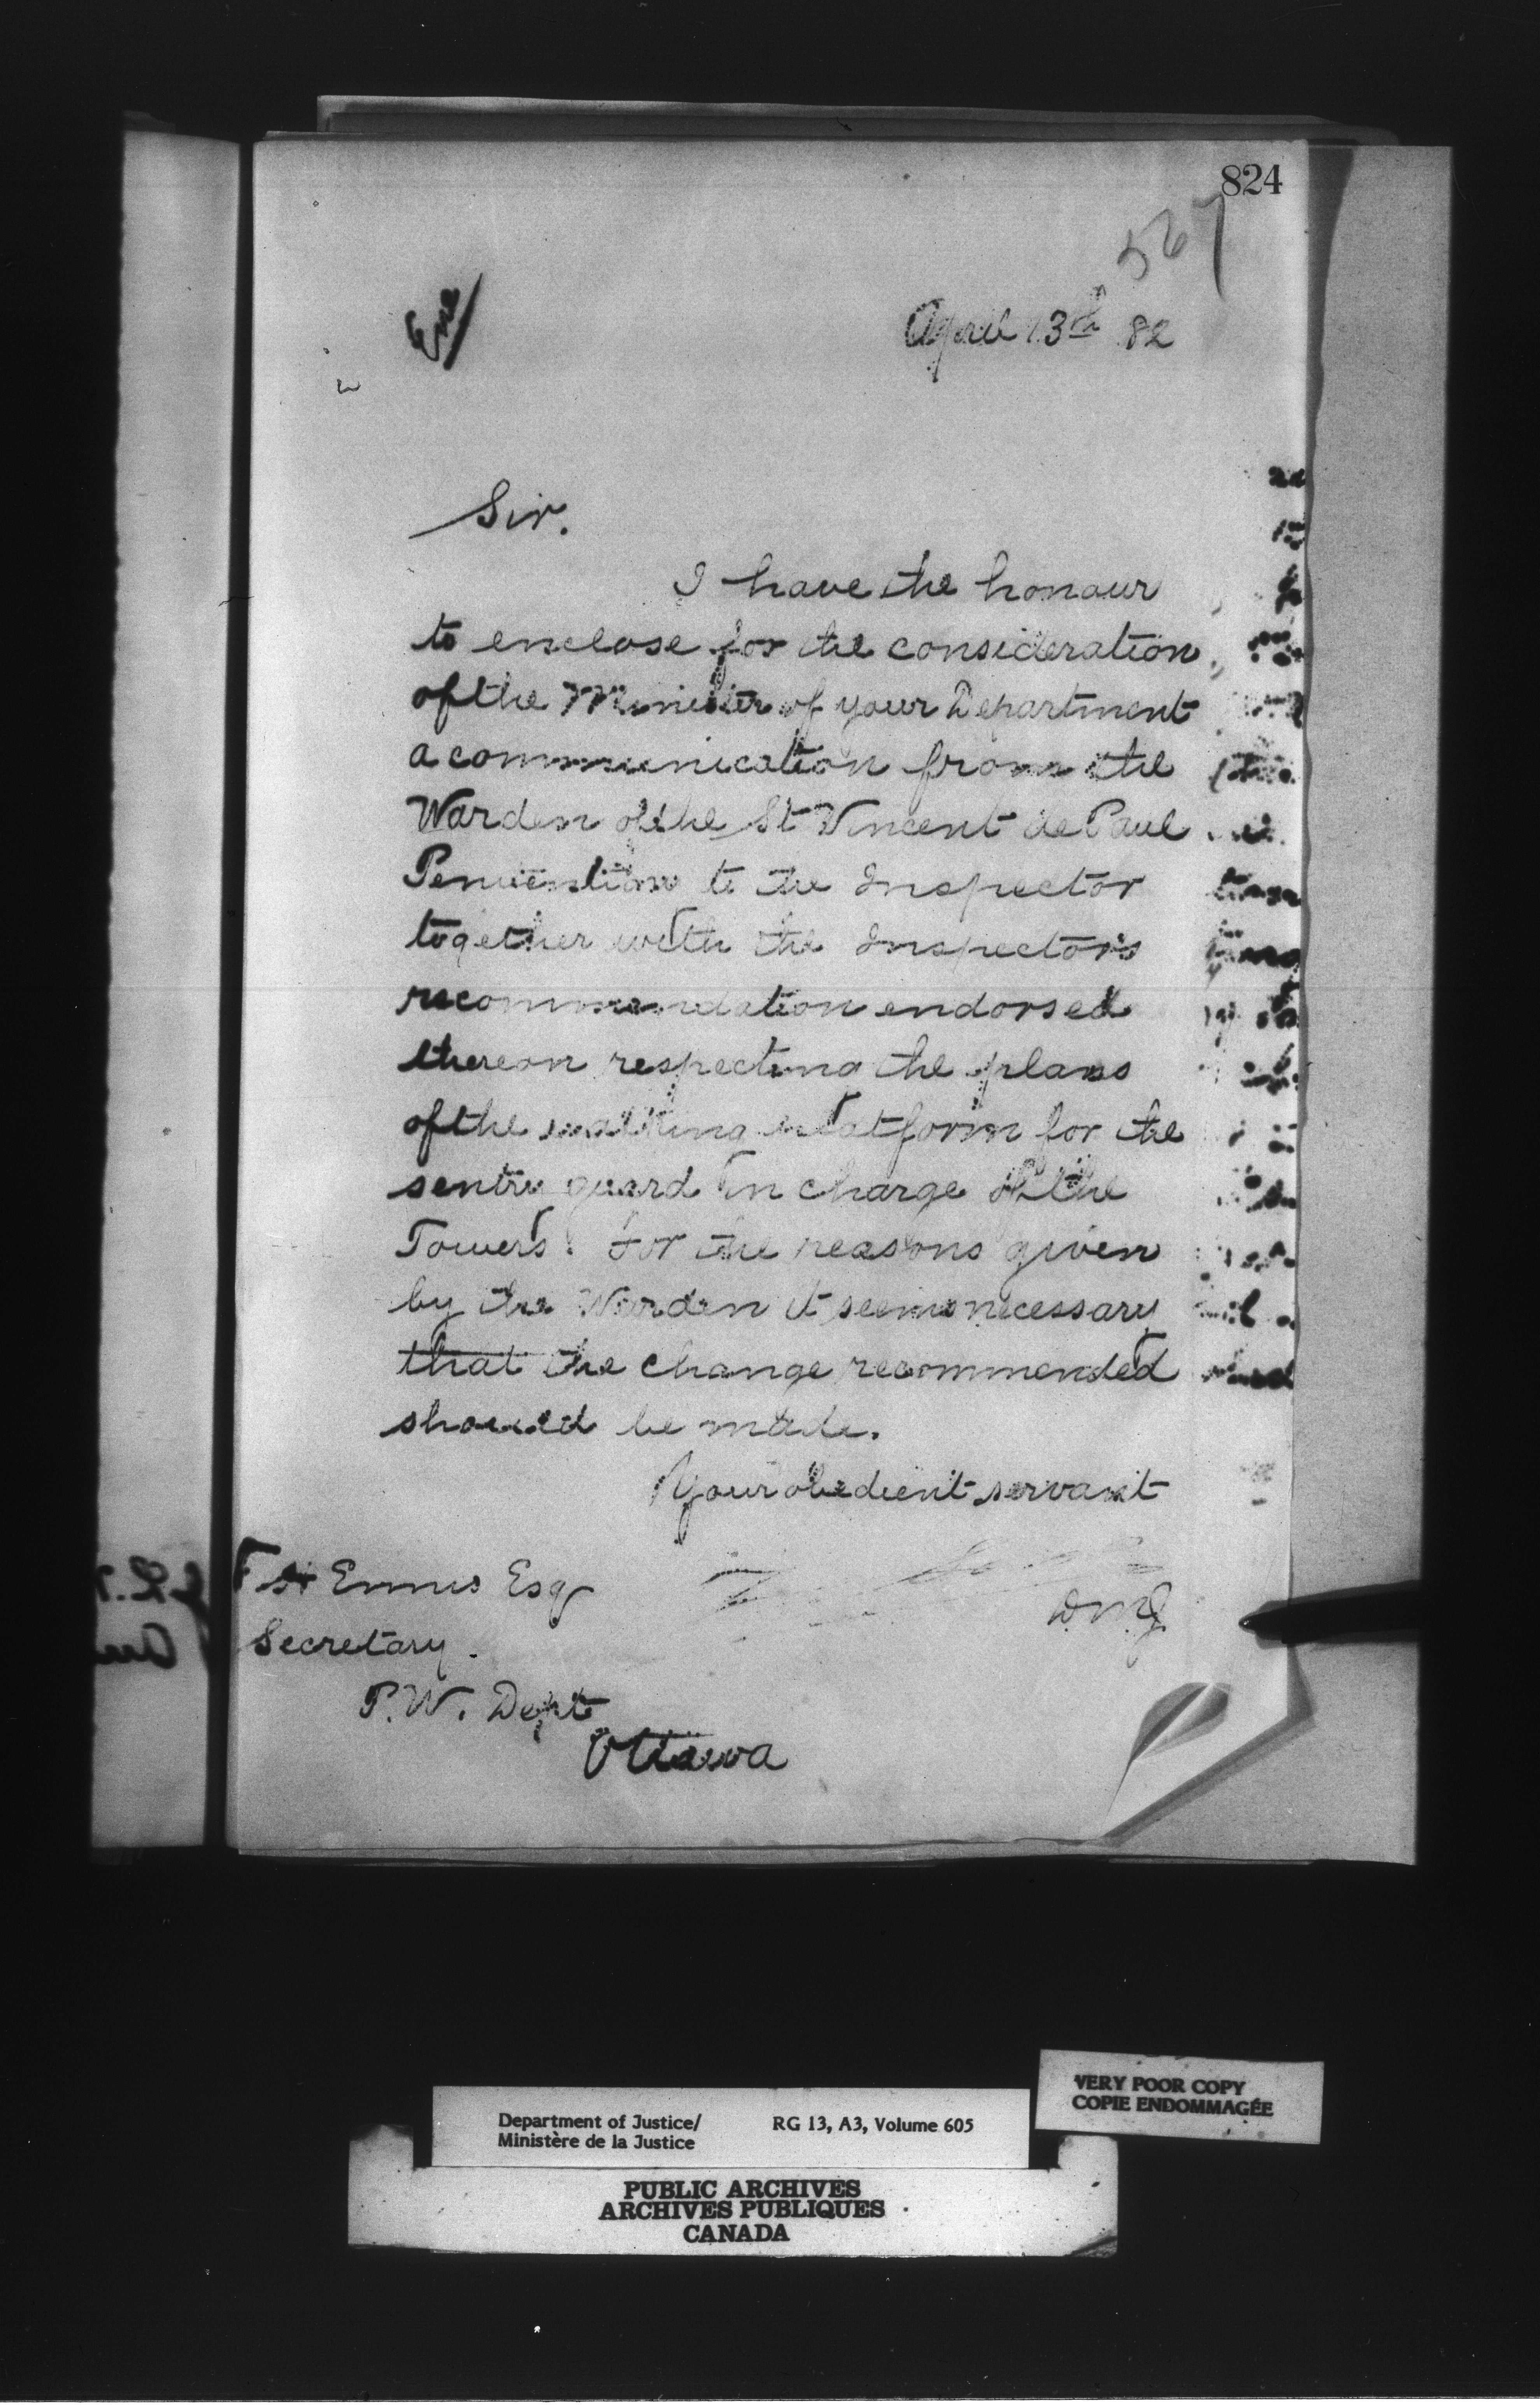 824
567
Enc
April 13th 82
Sir.
I have the honour
to enclose for the consideration
of the Minister of your Department
a communication from the
Warden of the St Vincent de Paul
Penitentiary to the Inspector
together with the Inspector's
recommendation endorsed
thereon respecting the plans
of the walking platform for the
sentry guard in charge of the
Towers. For the reasons given
by the Warden it seems necessary
that the change recommended
should be made.
Your obedient servant
D.M.J.
F H Ennis Esq
Secretary.
P.W. Dept
Ottawa
VERY POOR COPY
COPIE ENDOMMAGÉE
Department of Justice/ RG 13, A3, Volume 605
Ministère de la Justice
PUBLIC ARCHIVES
ARCHIVES PUBLIQUES
CANADA